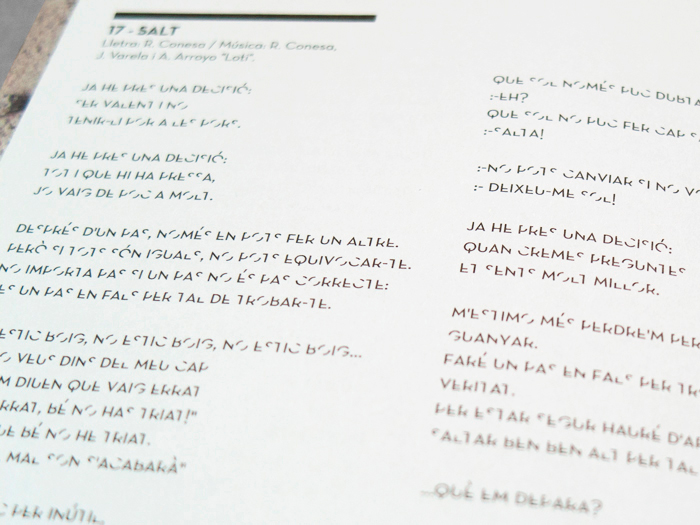 17 - SALT
Lletra: R. Canesa / Música: R. Canesa,
J. Varela i A. Arroyo "Loti".
JA HE PRES UNA DECISIÓ:
SER VALENT I NO
TENIR-LI POR A LES PORS.
JA HE PRES UNA DECISIÓ:
TOT I QUE HI HA PRESSA,
JO VAIG DE POC A MOLT.
DESPRÉS D'UN PAS, NOMÉS EN POTS FER UN ALTRE.
PERÒ SI TOTS SÓN IGUALS, NO POTS EQUIVOCAR-TE.
NO IMPORTA PAS SI UN PAS NO ÉS PAS CORRECTE:
ÉS UN PAS EN FALS PER TAL DE TROBAR-TE.
ESTIC BOIG, NO ESTIC BOIG, NO ESTIC BOIG...
VEUS DINS DEL MEU CAP
EM DIUEN QUE VAIG ERRAT
BÉ NO HAS TRIAT!"
BÉ NO HE TRIAT.
MAL SON S'ACABARÀ"
PER INÚTIL
QUE SOL NOMÉS PUC
:-EH?
QUE SOL NO PUC FER
:-SALTA!
:-NO POTS CANVIAR SI NO
:- DEIXEU-ME SOL!
JA HE PRES UNA DECISIÓ:
QUAN CREMES PREGUNTES
ET SENTS MOLT MILLOR.
M'ESTIMO MÉS PERDRE'M PER
GUANYAR.
FARÉ UN PAS EN FALS PER
VERITAT.
PER ESTAR SEGUR HAURÉ
SALTAR BEN BEN ALT PER TAL
...QUÈ EM DEPARA?